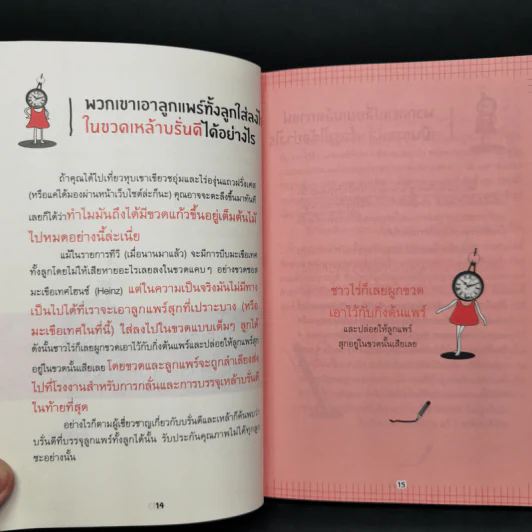 พวกเขาเอาลูกแพร์ทั้งลูกใส่ลงไป
ในขวดเหล้าบรั่นดีได้อย่างไร
ถ้าคุณได้ไปเที่ยวหุบเขาเขียวชอุ่มและไร่องุ่นแถวฝรั่งเศส
(หรือแค่ได้มองผ่านหน้าเว็บไซต์ล่ะก็นะ) คุณอาจจะตะลึงขึ้นมาทันที
เลยก็ได้ว่าทำไมมันถึงได้มีขวดแก้วขึ้นอยู่เต็มต้นไม้
ไปหมดอย่างนี้ล่ะเนี่ย
แม้ในรายการทีวี (เมื่อนานมาแล้ว) จะมีการบีบมะเขือเทศ
ทั้งลูกโดยไม่ให้เสียหายอะไรเลยลงในขวดแคบๆ อย่างขวดซอส
มะเขือเทศไฮนซ์ (Heinz) แต่ในความเป็นจริงมันไม่มีทาง
เป็นไปได้ที่เราจะเอาลูกแพร์สุกที่เปราะบาง (หรือ
มะเขือเทศในที่นี้) ใส่ลงไปในขวดแบบเต็มๆ ลูกได้
ดังนั้นชาวไร่ก็เลยผูกขวดเอาไว้กับกิ่งต้นแพร์และปล่อยให้ลูกแพร์สุก
อยู่ในขวดนั้นเสียเลย โดยขวดและลูกแพร์จะถูกลำเลียงส่ง
ไปที่โรงงานสำหรับการกลั่นและการบรรจุเหล้าบรั่นดี
ในท้ายที่สุด
อย่างไรก็ตามผู้เชี่ยวชาญเกี่ยวกับบรั่นดีและเหล้าก็ค้นพบว่า
บรั่นดีที่บรรจุลูกแพร์ทั้งลูกได้นั้น รับประกันคุณภาพไม่ได้ทุกลูก
ซะอย่างนั้น
14
ชาวไร่ก็เลยผูกขวด
เอาไว้กับกิ่งต้นแพร์
และปล่อยให้ลูกแพร์
สุกอยู่ในขวดนั้นเสียเลย
15